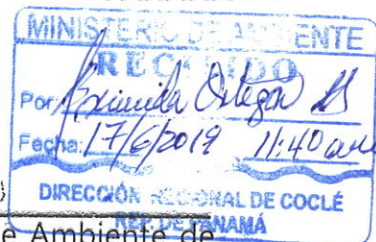 MINISTERIO DE AMBIENTE
RECIBIDO
Por: Ortega
Fecha: 17/6/2019 11:40 am
DIRECCIÓN REGIONAL DE COCLÉ
REP. DE PANAMÁ
e Ambiente de